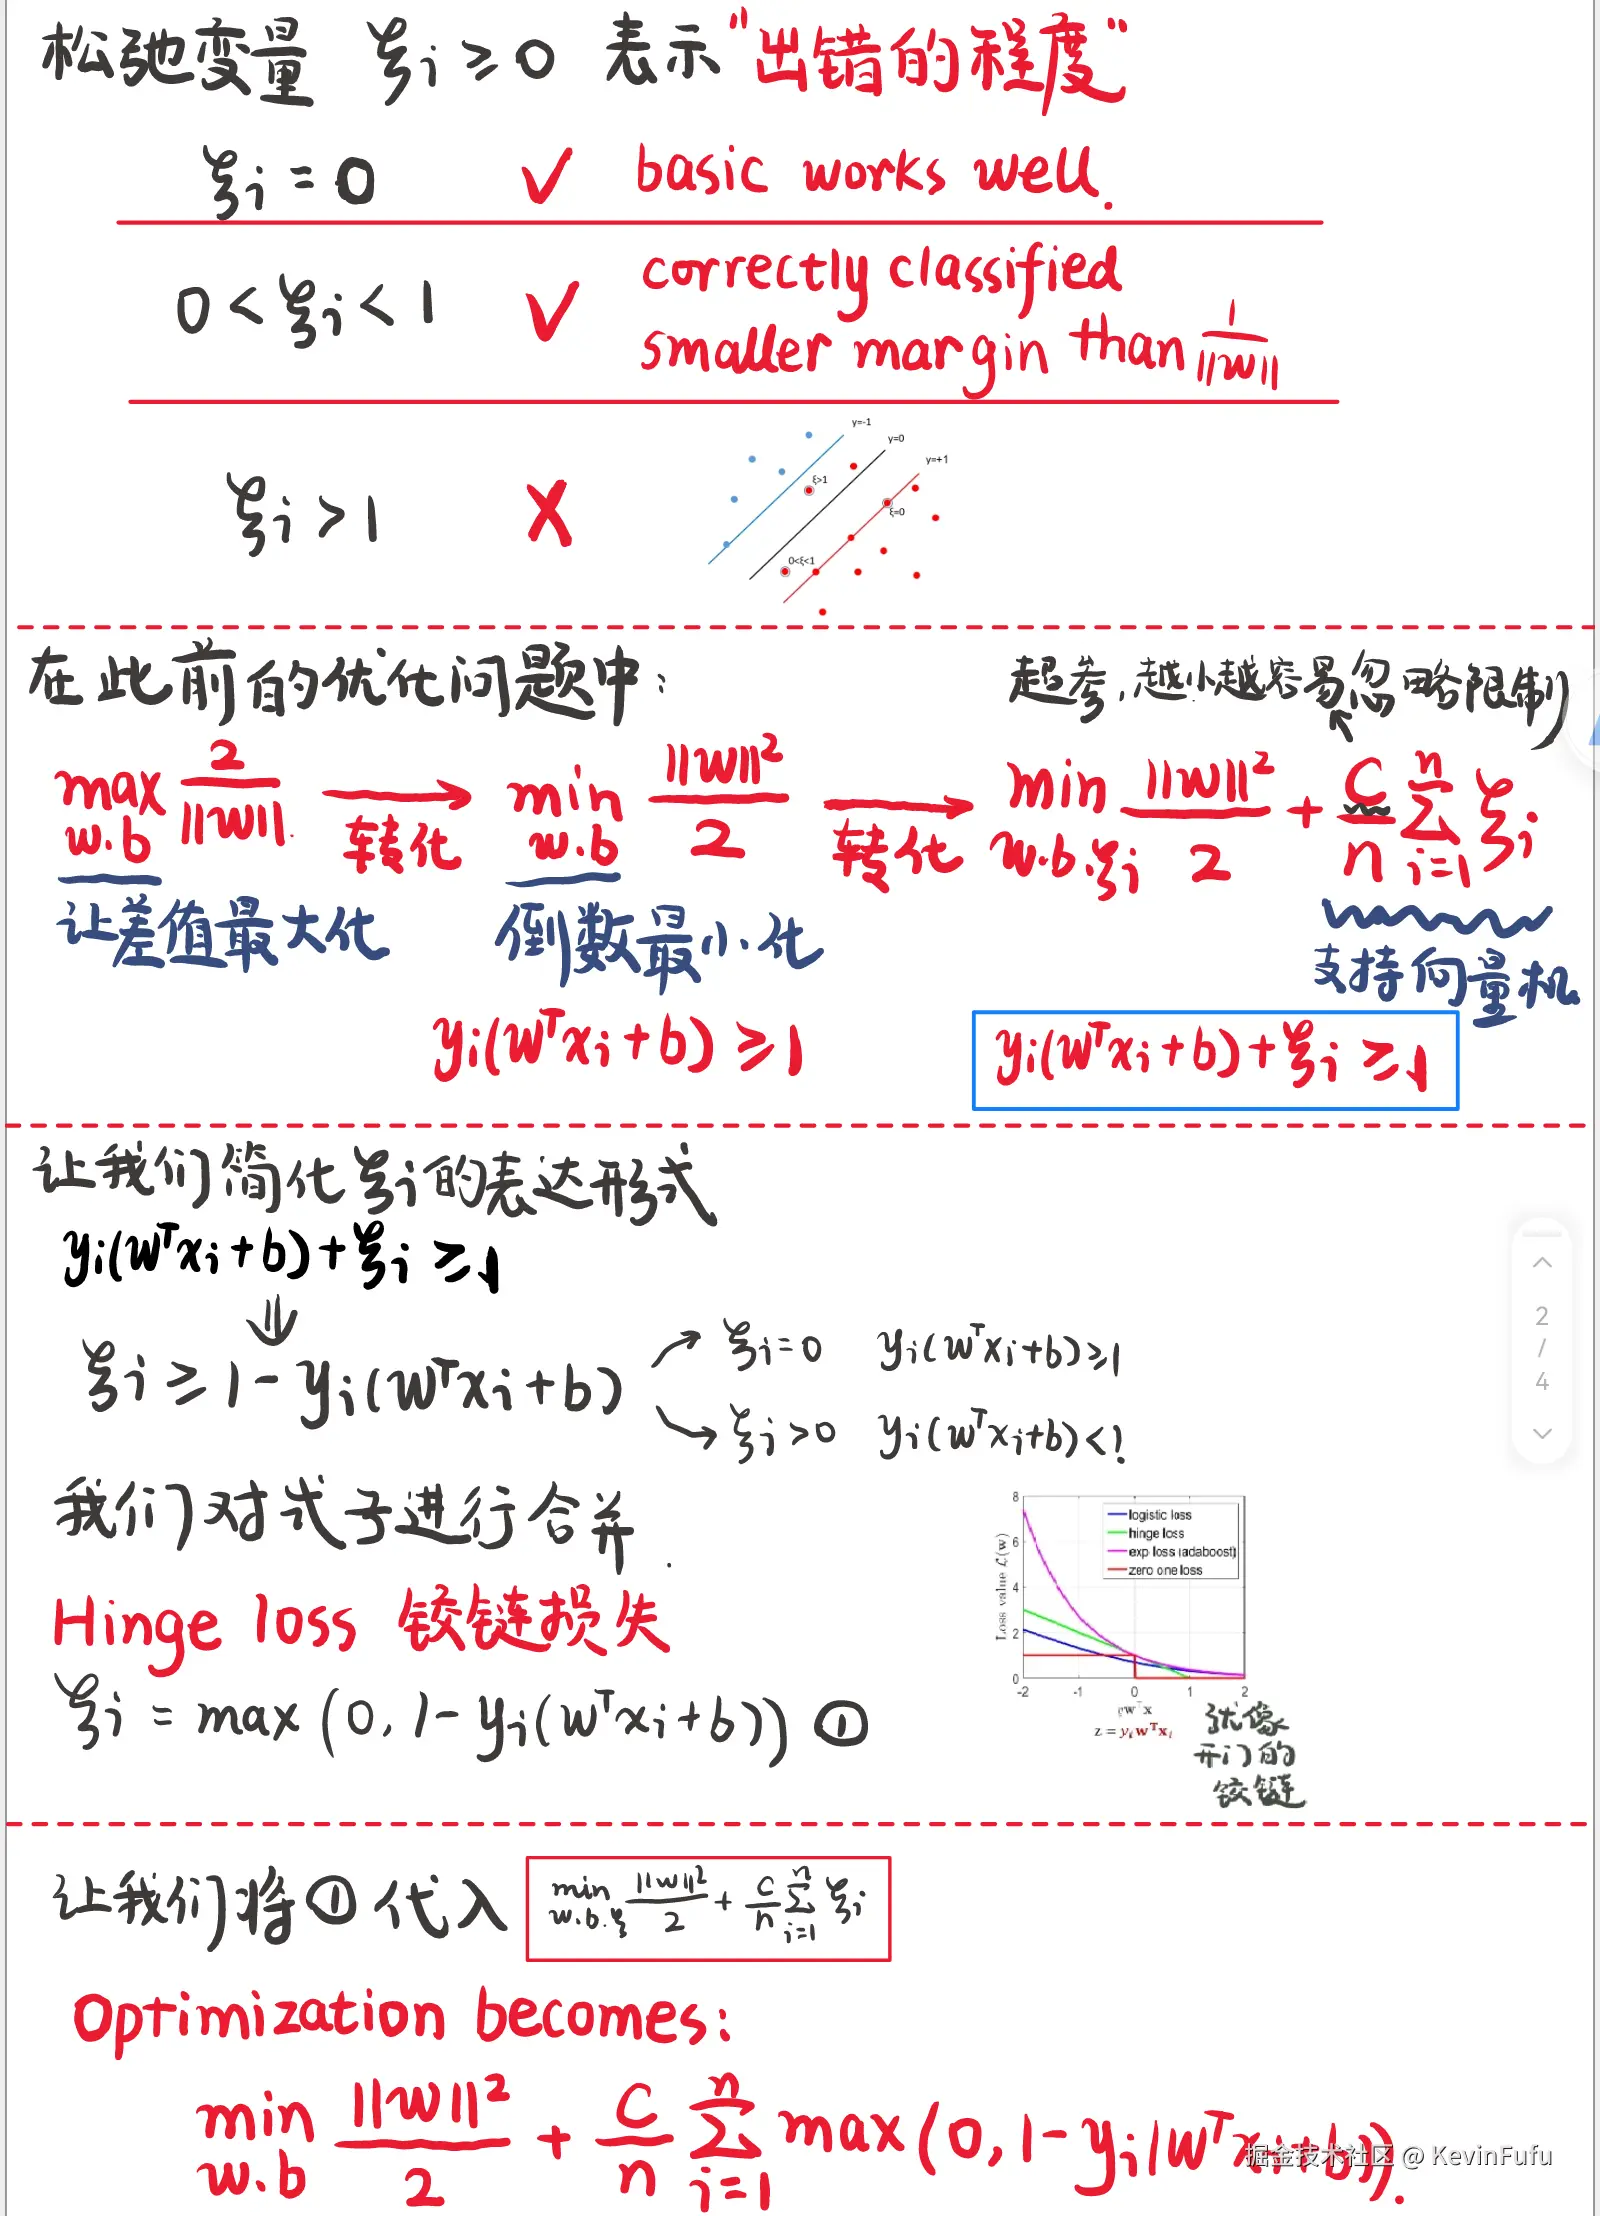 松弛变量 ξi ≥ 0 表示"出错的程度"
ξi = 0 ✓ basic works well.
0 < ξi < 1 ✓ correctly classified
smaller margin than 1/||w||
ξi > 1 ✗
y=-1
y=0
y=+1
ξ>1
ξ=0
0<ξ<1
在此前的优化问题中:
超参,越小越容易忽略限制
max w.b 2/||w||. 转化 min w.b ||w||²/2 转化 min w.b.ξi ||w||²/2 + C/n Σ i=1 n ξi
让差值最大化 倒数最小化 支持向量机
yi(wᵀxi+b) ≥ 1 yi(wᵀxi+b)+ξi ≥ 1
让我们简化ξi的表达形式
yi(wᵀxi+b)+ξi ≥ 1
⇓
ξi ≥ 1-yi(wᵀxi+b)
ξi=0 yi(wᵀxi+b)≥1
ξi>0 yi(wᵀxi+b)<1
我们对式子进行合并.
Hinge loss 铰链损失
ξi = max(0, 1-yi(wᵀxi+b)) ①
logistic loss
hinge loss
exp loss (adaboost)
zero one loss
Loss value ℒ(w)
8
6
4
2
0
-2 -1 0 1 2
z = yi wᵀxi
就像
开门的
铰链
2
/
4
让我们将①代入 min w.b.ξ ||w||²/2 + C/n Σ i=1 n ξi
Optimization becomes:
min w.b ||w||²/2 + C/n Σ i=1 n max(0, 1-yi(wᵀxi+b)).
掘金技术社区 @ KevinFufu